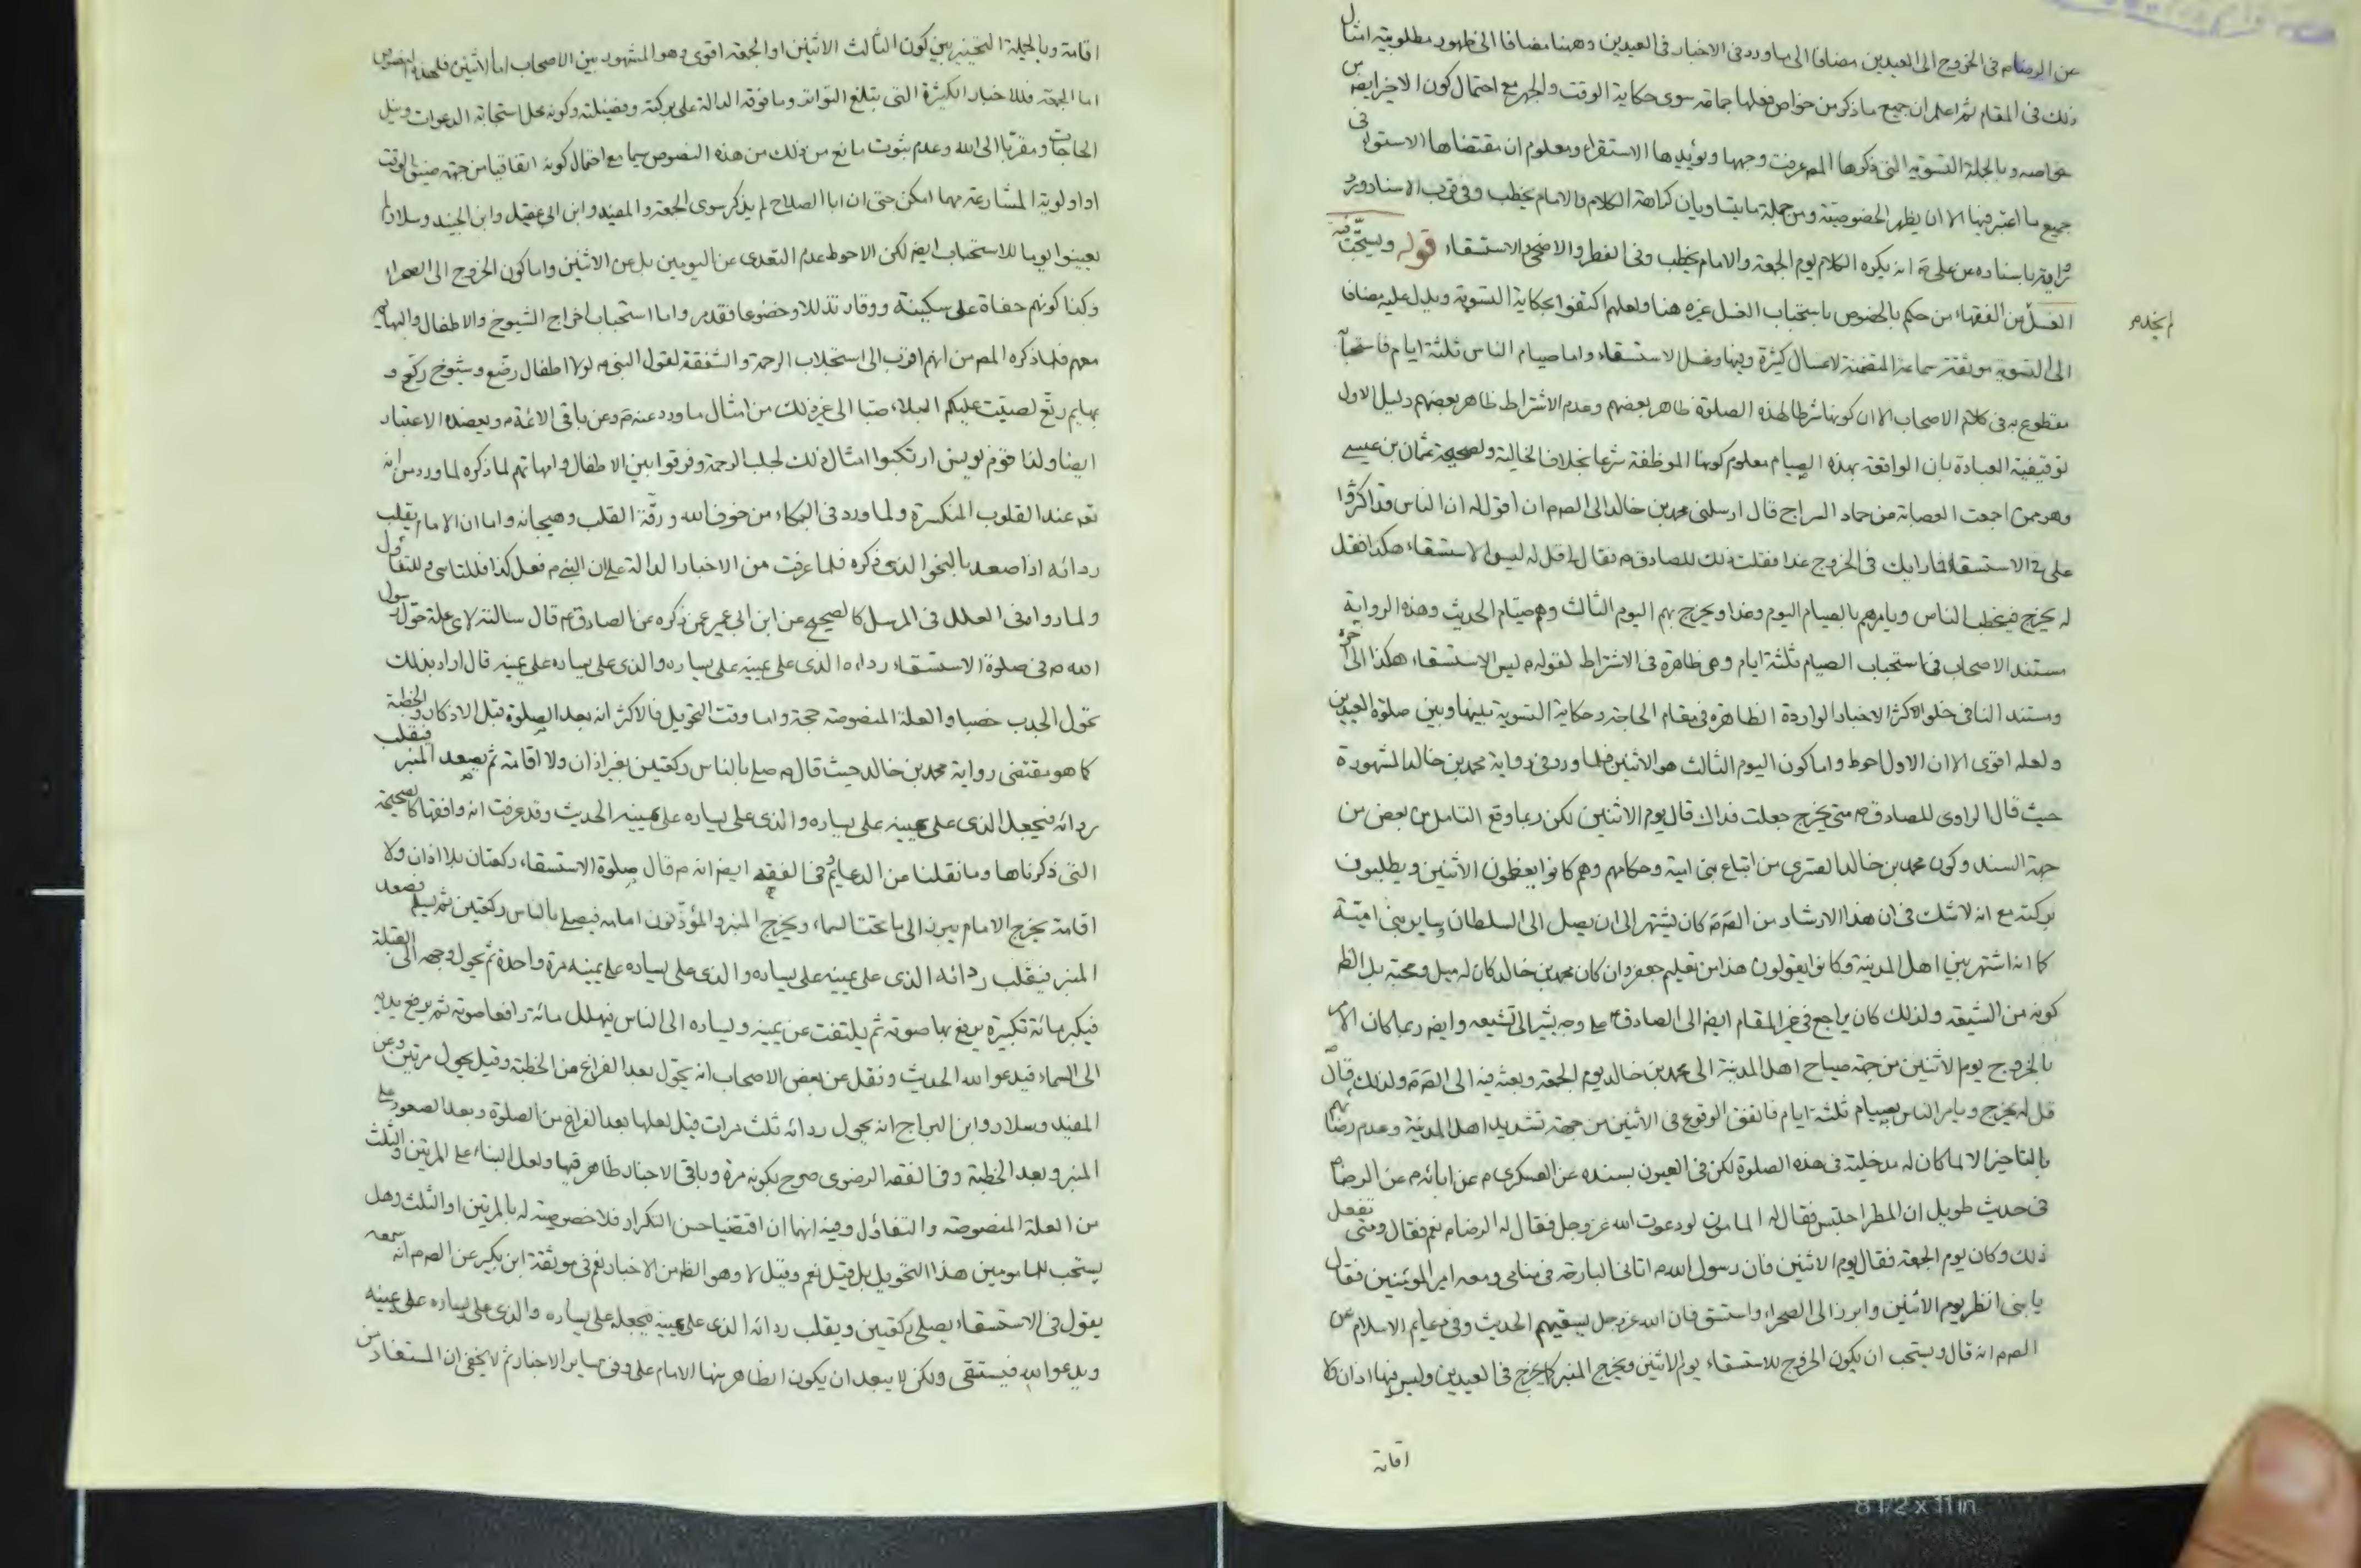 عن الرضا م فى الخروج الى العيدين مضافا الى ما ورد فى الاخبار فى العيدين وههنا مضافا الى ظهور مطلوبية امثال
ذلك فى المقام ثم اعلم ان جميع ما ذكر من خواص فعلها جماعة سوى حكاية الوقت والجهر مع احتمال كون الاخير ايضا من
خواصه وبالجملة التسوية التى ذكرها المص عرفت وجهها ويؤيدها الاستقراء ومعلوم ان مقتضاها الاستواء فى
جميع ما اعتبر فيها الا ان يظهر الخصوصية ومن جملة ما بيننا وبان كراهة الكلام والامام يخطب وفى قرب الاسناد ورد
باسناده عن على م انه يكره الكلام يوم الجمعة والامام يخطب وفى الفطر والاضحى والاستسقاء قوله ويستحب فيه
الغسل من الفقهاء من حكم بالخصوص باستحباب الغسل غيره هنا ولعلهم اكتفوا بحكاية التسوية ويدل عليه مضافا
لم يخدم
الى التسوية موثقة سماعة المتضمنة لاغسال كثيرة وفيها وغسل الاستسقاء واما صيام الناس ثلثة ايام
مقطوع به فى كلام الاصحاب الا ان كونها شرطا لهذه الصلوة ظاهر بعضهم وعدم الاشتراط ظاهر بعضهم دليل الاول
توقيفية العبادة بان الواقعة بهذه الصيام معلوم كونها الموظفة شرعا بخلاف الخالية ولصحيحة عثمان بن عيسى
وهو ممن اجمعت العصابة من حماد السراج قال ارسلنى محمد بن خالد الى الص م ان اقول له ان الناس قد اكثروا
على فى الاستسقاء فما رايك فى الخروج غدا فقلت ذلك للصادق م فقال لى قل له ليس الاستسقاء هكذا فقل
له يخرج فيخطب الناس ويامرهم بالصيام اليوم وغدا ويخرج بهم اليوم الثالث وهم صيام الحديث وهذه الرواية
مستند الاصحاب فى استحباب الصيام ثلثة ايام وهى ظاهرة فى الاشتراط لقوله م ليس الاستسقاء هكذا الى اخره
ومستند النافى خلو الاكثر الاخبار الواردة الظاهرة فى مقام الحاجة وحكاية التسوية بينها وبين صلوة العيدين
ولعله اقوى الا ان الاول احوط واما كون اليوم الثالث هو الاثنين فلما ورد فى رواية محمد بن خالد المشهورة
حيث قال الراوى للصادق م متى يخرج جعلت فداك قال يوم الاثنين لكن ربما وقع التامل من بعض من
جهة السند وكون محمد بن خالد القسرى من اتباع بنى امية وحكامهم وهم كانوا يعظمون الاثنين ويطلبون
بركته مع انه لا شك فى ان هذا الارشاد من الص م كان يشتهر الى ان يصل الى السلطان وساير بنى امية
كما انه اشتهر بين اهل المدينة وكانوا يقولون هذا من تعليم جعفر وان كان محمد بن خالد كان له ميل ومحبة بل الظ
كونه من الشيعة ولذلك كان يراجع فى غير المقام ايضا الى الصادق م على وجه يشير الى تشيعه وايضا ربما كان الامر
بالخروج يوم الاثنين من جهة صياح اهل المدينة الى محمد بن خالد يوم الجمعة وبعثه فيه الى الص م ولذلك قال
قل له يخرج ويامر الناس بصيام ثلثة ايام فاتفق الوقوع فى الاثنين من جهة تشديد اهل المدينة وعدم رضاهم
بالتاخير الا لما كان له مدخلية فى هذه الصلوة لكن فى العيون بسنده عن العسكرى م عن ابائه م عن الرضا م
فى حديث طويل ان المطر احتبس فقال له المامون لو دعوت الله عز وجل فقال له الرضا م نعم فقال ومتى تفعل
ذلك وكان يوم الجمعة فقال يوم الاثنين فان رسول الله م اتانى البارحة فى منامى ومعه امير المومنين فقال
يا بنى انظر يوم الاثنين وابرز الى الصحراء واستسق فان الله عز وجل يسقيهم الحديث وفى دعايم الاسلام عن
الص م انه قال ويستحب ان يكون الخروج للاستسقاء يوم الاثنين ويخرج المنبر كما يخرج فى العيدين وليس فيها اذان ولا
اقامة
اقامة وبالجملة التخيير بين كون الثالث الاثنين او الجمعة اقوى وهو المشهور بين الاصحاب اما الاثنين فلهذه النصوص
اما الجمعة فللاخبار الكثيرة التى تبلغ التواتر وما فوقه الدالة على بركته وفضيلته وكونه محل استجابة الدعوات ونيل
الحاجات ومقربا الى الله وعدم ثبوت مانع من ذلك من هذه النصوص سيما مع احتمال كونه اتفاقيا من جهة ضيق الوقت
او اولوية المسارعة مهما امكن حتى ان ابا الصلاح لم يذكر سوى الجمعة والمفيد وابن ابى عقيل وابن الجنيد وسلار لم
يعينوا يوما للاستحباب ايضا لكن الاحوط عدم التعدى عن اليومين بل عن الاثنين واما كون الخروج الى الصحراء
وكذا كونهم حفاة على سكينة ووقار تذللا وخضوعا فقد مر واما استحباب اخراج الشيوخ والاطفال والبهايم
معهم فلما ذكره المص من انهم اقرب الى استجلاب الرحمة والشفقة لقول النبى م لولا اطفال رضع وشيوخ ركع و
بهايم رتع لصبت عليكم البلاء صبا الى غير ذلك من امثال ما ورد عنه م وعن باقى الائمة م ويعضده الاعتبار
ايضا ولذا قوم يونس ارتكبوا امثال ذلك لجلب الرحمة وفرقوا بين الاطفال وامهاتهم لما ذكره لما ورد من انه
تع عند القلوب المنكسرة ولما ورد فى البكاء من خوف الله ورقة القلب وهيجانه واما ان الامام يقلب
ردائه اذا صعد بالنحو الذى ذكره فلما عرفت من الاخبار الدالة على ان النبى م فعل كذا فللتاسى وللتفأول
ولما رواه فى العلل فى المرسل كالصحيح عن ابن ابى عمير عمن ذكره عن الصادق م قال سالته لاى علة حول رسول
الله م فى صلوة الاستسقاء رداءه الذى على يمينه على يساره والذى على يساره على يمينه قال اراد بذلك
تحول الجدب خصبا والعلة المنصوصة حجة واما وقت التحويل فالاكثر انه بعد الصلوة قبل الاذكار والخطبة
كما هو مقتضى رواية محمد بن خالد حيث قال م صلى بالناس ركعتين بغير اذان ولا اقامة ثم يصعد المنبر فيقلب
ردائه فيجعل الذى على يمينه على يساره والذى على يساره على يمينه الحديث وقد عرفت انه وافقها كالصحيحة
التى ذكرناها وما نقلنا عن الدعايم وفى الفقه ايضا انه م قال صلوة الاستسقاء ركعتان بلا اذان ولا
اقامة يخرج الامام يبرز الى ما تحت السماء ويخرج المنبر والمؤذنون امامه فيصلى بالناس ركعتين ثم يسلم فيصعد
المنبر فيقلب ردائه الذى على يمينه على يساره والذى على يساره على يمينه مرة واحدة ثم يحول وجهه الى القبلة
فيكبر مائة تكبيرة يرفع بها صوته ثم يلتفت عن يمينه ويساره الى الناس فيهلل مائة رافعا صوته ثم يرفع يديه
الى السماء فيدعو الله الحديث ونقل عن بعض الاصحاب انه يحول بعد الفراغ من الخطبة وقيل يحول مرتين وعن
المفيد وسلار وابن البراج انه يحول ردائه ثلث مرات قيل لعلها بعد الفراغ من الصلوة وبعد الصعود على
المنبر وبعد الخطبة وفى الفقه الرضوى صرح بكونه مرة وباقى الاخبار ظاهر فيها ولعل البناء على المرتين والثلث
من العلة المنصوصة والتفاؤل وفيه انهما ان اقتضيا حسن التكرار فلا خصوصية له بالمرتين او الثلث وهل
يستحب للمامومين هذا التحويل بل قيل نعم وقيل لا وهو الظ من الاخبار نعم فى موثقة ابن بكير عن الص م انه سمعه
يقول فى الاستسقاء يصلى ركعتين ويقلب ردائه الذى على يمينه فيجعله على يساره والذى على يساره على يمينه
ويدعو الله فيستقى ولكن لا يبعد ان يكون الظاهر منها الامام على وفق ساير الاخبار ثم لا يخفى ان المستفاد من